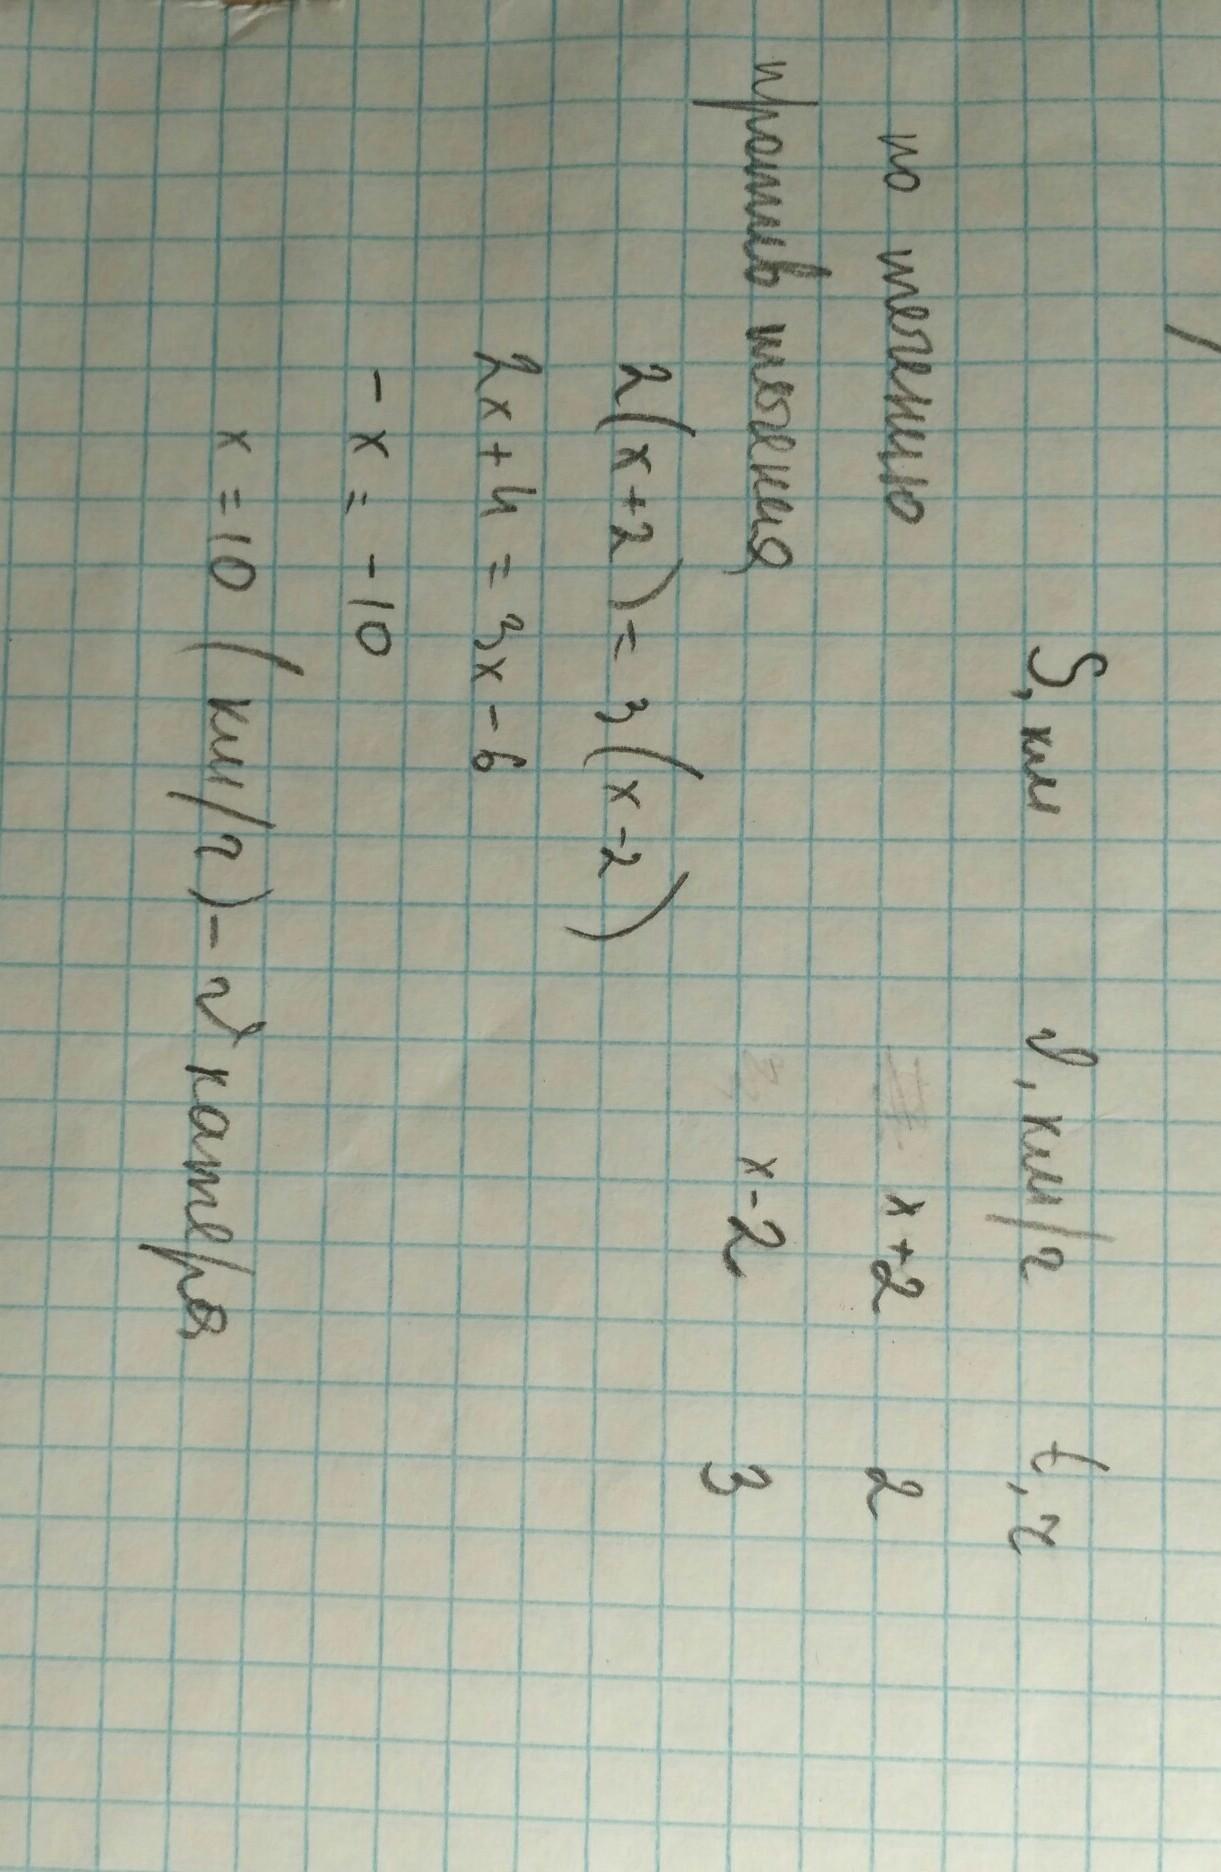 S, км v, км/ч t, ч
по течению x+2 2
против течения x-2 3
2(x+2)=3(x-2)
2x+4=3x-6
-x=-10
x=10 (км/ч)-v катера